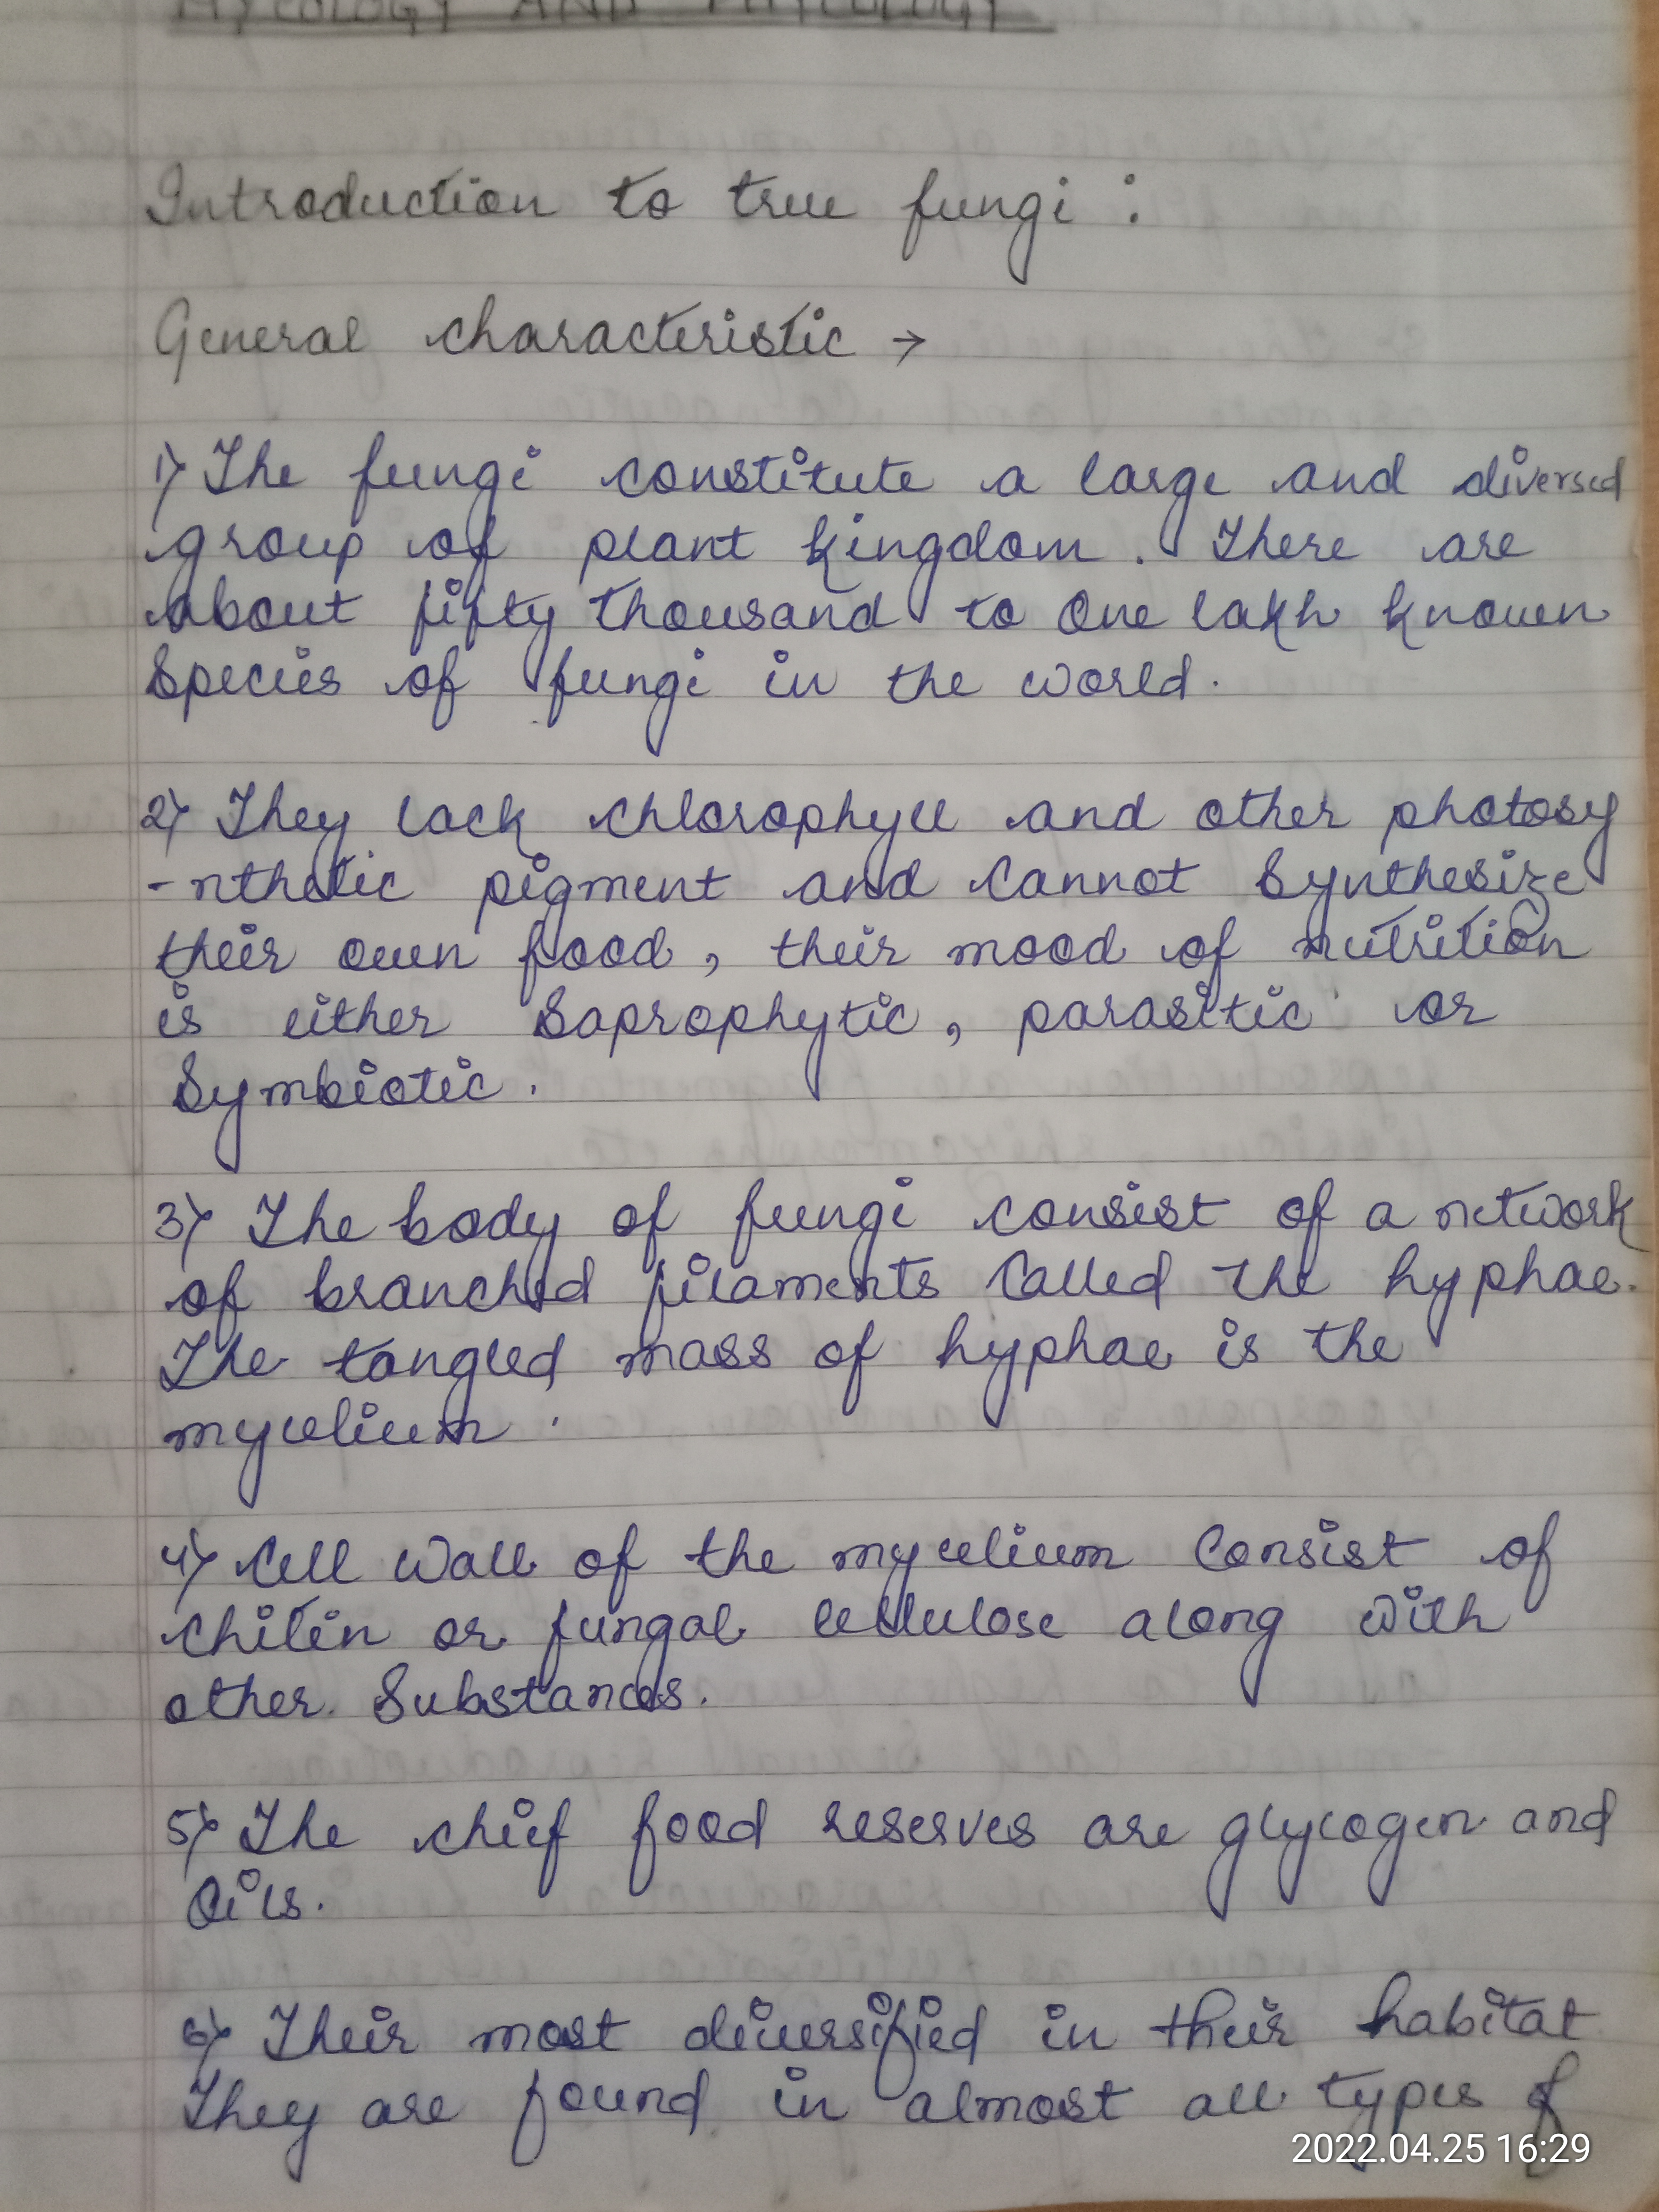 MYCOLOGY AND PHYCOLOGY
Introduction to true fungi :
General characteristic →
1) The fungi constitute a large and diversed
group of plant kingdom. There are
about fifty thousand to One lakh known
Species of fungi in the world.
2) They lack chlorophyll and other photosy
-nthetic pigment and cannot Synthesize
their own food, their mood of nutrition
is either Saprophytic, parasitic or
Symbiotic.
3) The body of fungi consist of a network
of branched filaments Called the hyphae.
The tangled mass of hyphae is the
mycelium.
4) Cell Wall of the mycelium Consist of
chitin or fungal cellulose along with
other Substances.
5) The chief food reserves are glycogen and
Oils.
6) Their most diversified in their habitat
They are found in almost all types of
2022.04.25 16:29